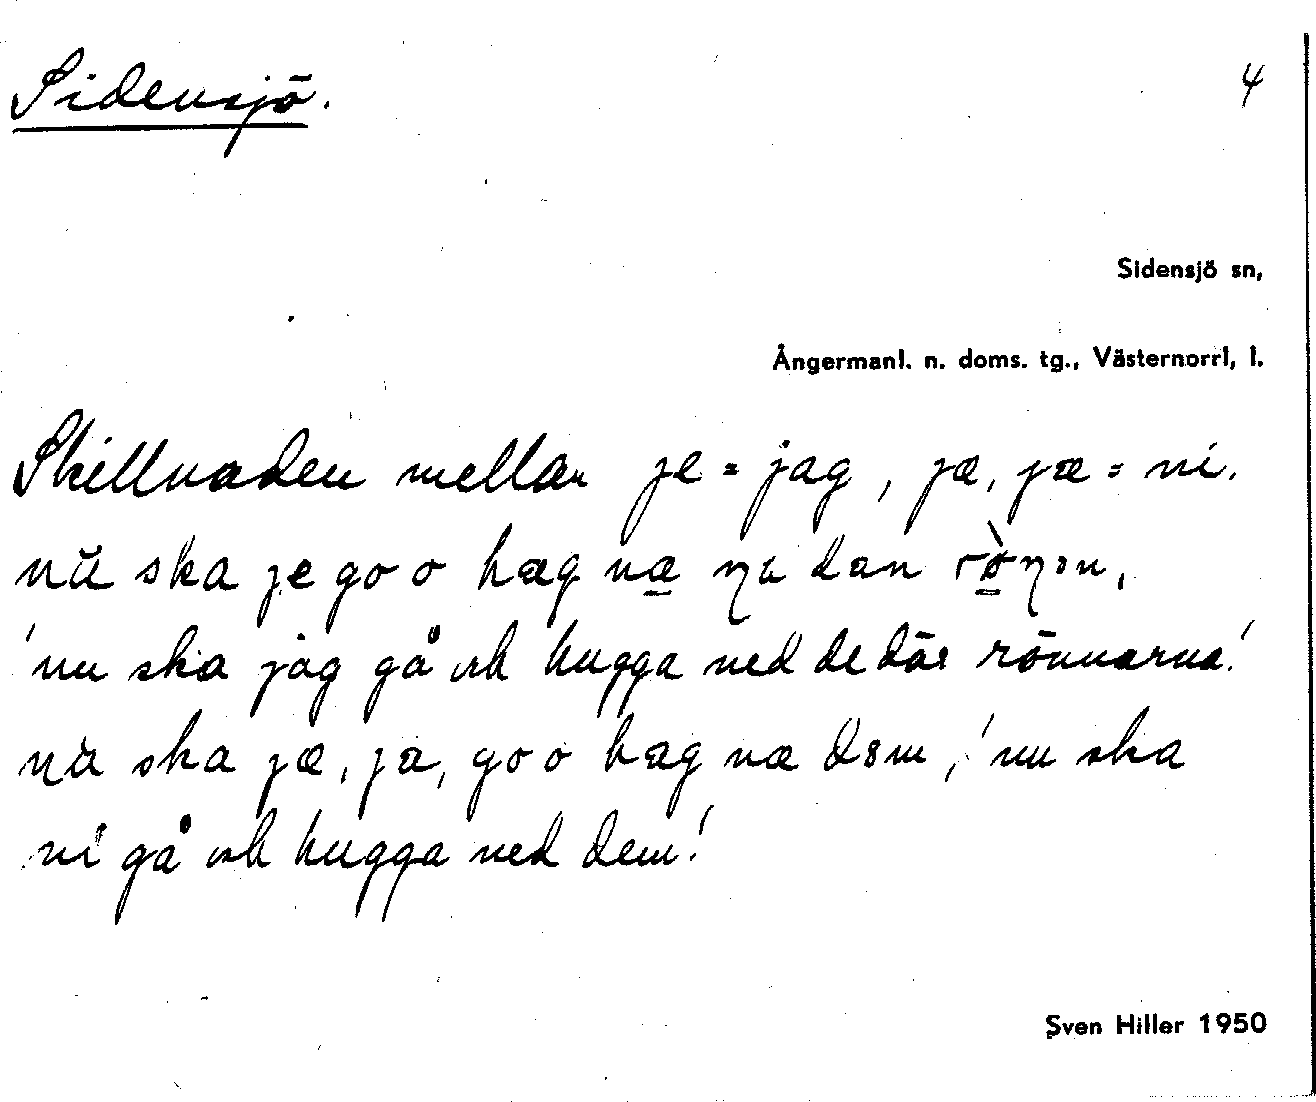 Sidensjö. 4
Sidensjö sn,
Ångermanl. n. doms. tg., Västernorrl. l.
Skillnaden mellan je = jag, jæ, jæ = ni.
nu ska je go o hæg næ dæn
'nu ska jag gå och hugga ned de där rönnarna!'
nu ska jæ, ja, go o hæg næ dem, 'nu ska
ni gå och hugga ned dem!'
Sven Hiller 1950